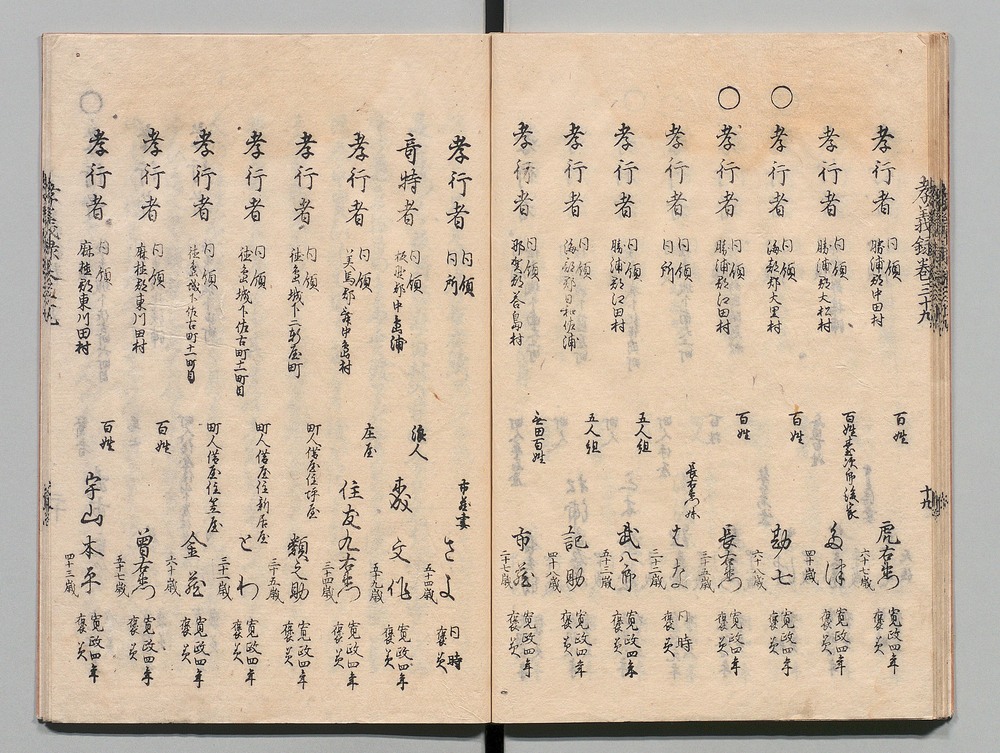 孝義録巻三十九
十九
孝行者 同領 勝浦郡中田村 百姓 虎右衛門 六十七歳 寛政四年 褒美
孝行者 同領 勝浦郡大松村 四十八歳 寛政四年 褒美
〇 孝行者 同領 海部郡大里村 百姓 勘七 六十八歳 寛政四年 褒美
〇 孝行者 同領 勝浦郡江田村 百姓 長右衛門 三十五歳 寛政四年 褒美
孝行者 同領 同所 長右衛門妹 はな 三十二歳 同時 褒美
孝行者 同領 勝浦郡江田村 五人組 武八郎 五十三歳 寛政四年 褒美
孝行者 同領 海部郡日和佐浦 五人組 記助 四十八歳 寛政四年 褒美
孝行者 同領 那賀郡答島村 百姓 市蔵 二十七歳 寛政四年 褒美
孝行者 同領 同所 市蔵妻 さよ 五十四歳 同時 褒美
奇特者 同領 板野郡中島浦 浪人 文作 五十九歳 寛政四年 褒美
孝行者 同領 美馬郡 庄屋 住友九右衛門 三十四歳 寛政四年 褒美
孝行者 同領 徳島城下二軒屋町 町人借屋住坪屋 類之助 三十五歳 寛政四年 褒美
孝行者 同領 徳島城下佐古町十一町目 町人借屋住新居屋 とわ 三十一歳 寛政四年 褒美
孝行者 同領 徳島城下佐古町十一町目 町人借屋住笠屋 金蔵 六十歳 寛政四年 褒美
孝行者 同領 麻植郡東川田村 百姓 曽右衛門 五十七歳 寛政四年 褒美
孝行者 同領 麻植郡東川田村 百姓 宇山本平 四十三歳 寛政四年 褒美